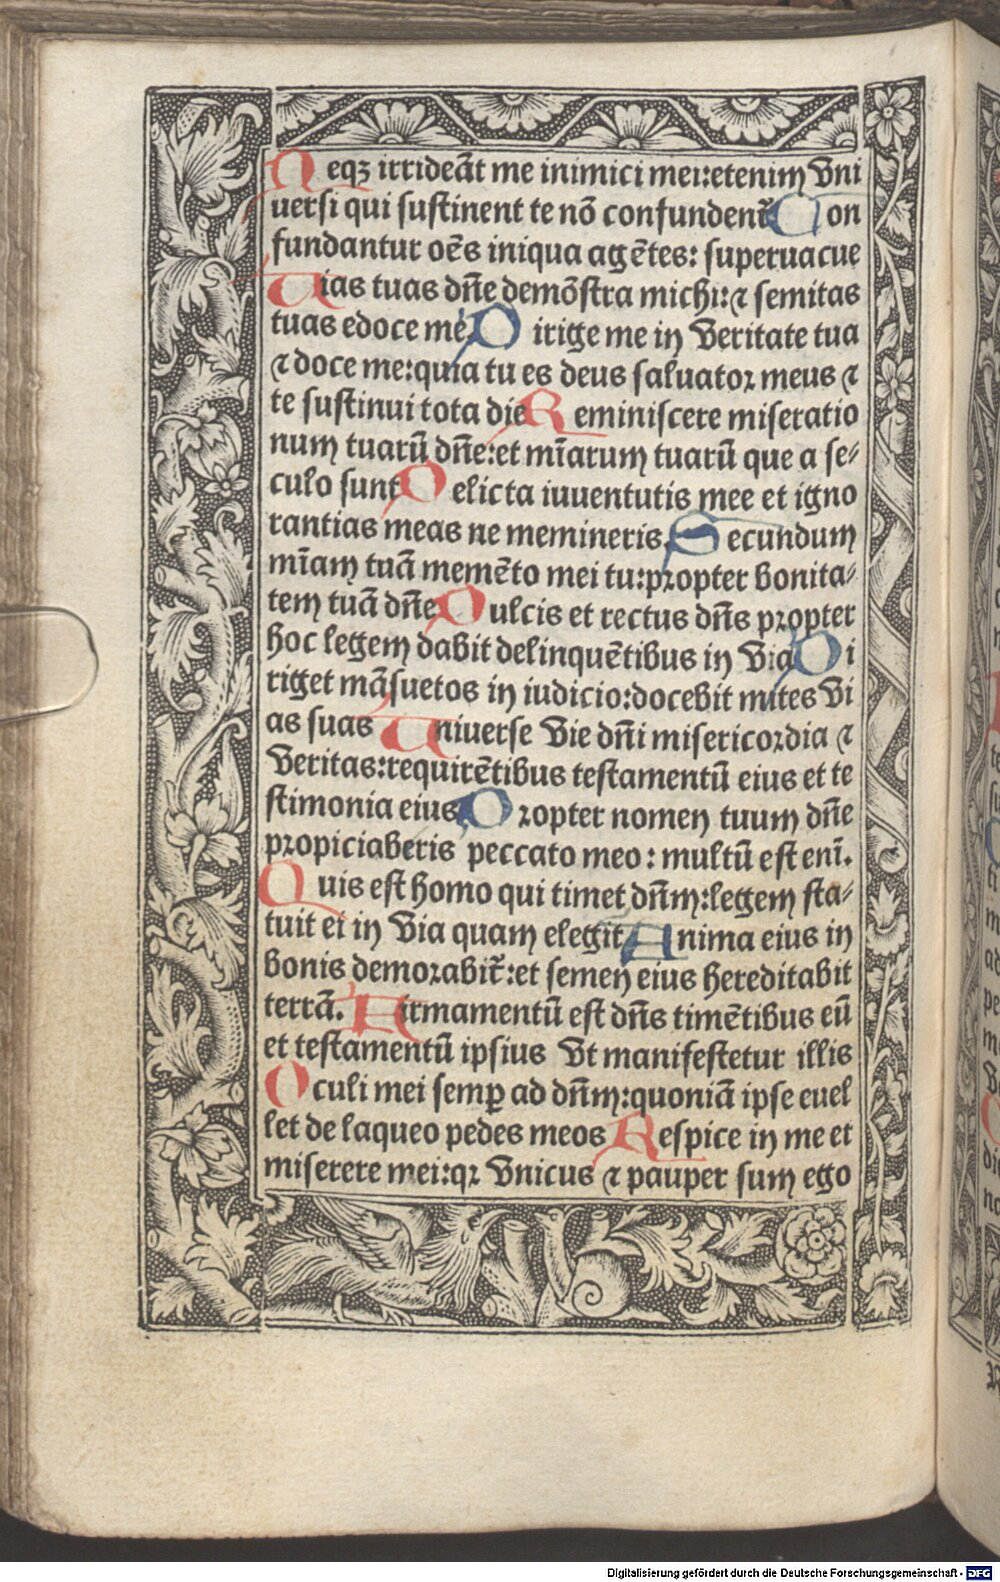 Neqꝫ irrideāt me inimici mei:etenim vni
uersi qui sustinent te nō confundent᷑ Con
fundantur oēs iniqua agētes: superuacue
Uias tuas dn̄e demōstra michi:⁊ semitas
tuas edoce me Dirige me in veritate tua
⁊ doce me:quia tu es deus saluator meus ⁊
te sustinui tota die Reminiscere miseratio
num tuarū dn̄e:et mīarum tuarū que a se⸗
culo sunt Delicta iuuentutis mee et igno
rantias meas ne memineris Secundum
mīam tuā memēto mei tu:propter bonita⸗
tem tuā dn̄e Dulcis et rectus dn̄s propter
hoc legem dabit delinquētibus in via Di
riget māsuetos in iudicio:docebit mites vi
as suas Uniuerse vie dn̄i misericordia ⁊
veritas:requirētibus testamentū eius et te
stimonia eius Propter nomen tuum dn̄e
propiciaberis peccato meo: multū est eni̅.
Quis est homo qui timet dn̄m:legem sta⸗
tuit ei in via quam elegit Anima eius in
bonis demorabit᷑:et semen eius hereditabit
terrā. Firmamentū est dn̄s timētibus eū
et testamentū ipsius vt manifestetur illis
Oculi mei semꝑ ad dn̄m:quoniā ipse euel
let de laqueo pedes meos Respice in me et
miserere mei:qꝛ vnicus ⁊ pauper sum ego
Digitalisierung gefördert durch die Deutsche Forschungsgemeinschaft - DFG